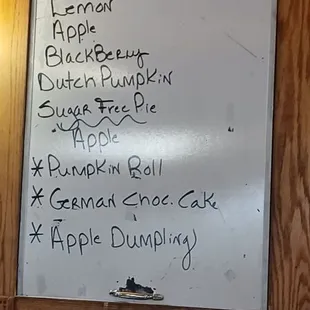 Lemon
Apple
BlackBerry
Dutch Pumpkin
Sugar Free Pie
Apple
* Pumpkin Roll
* German Choc. Cake
* Apple Dumpling